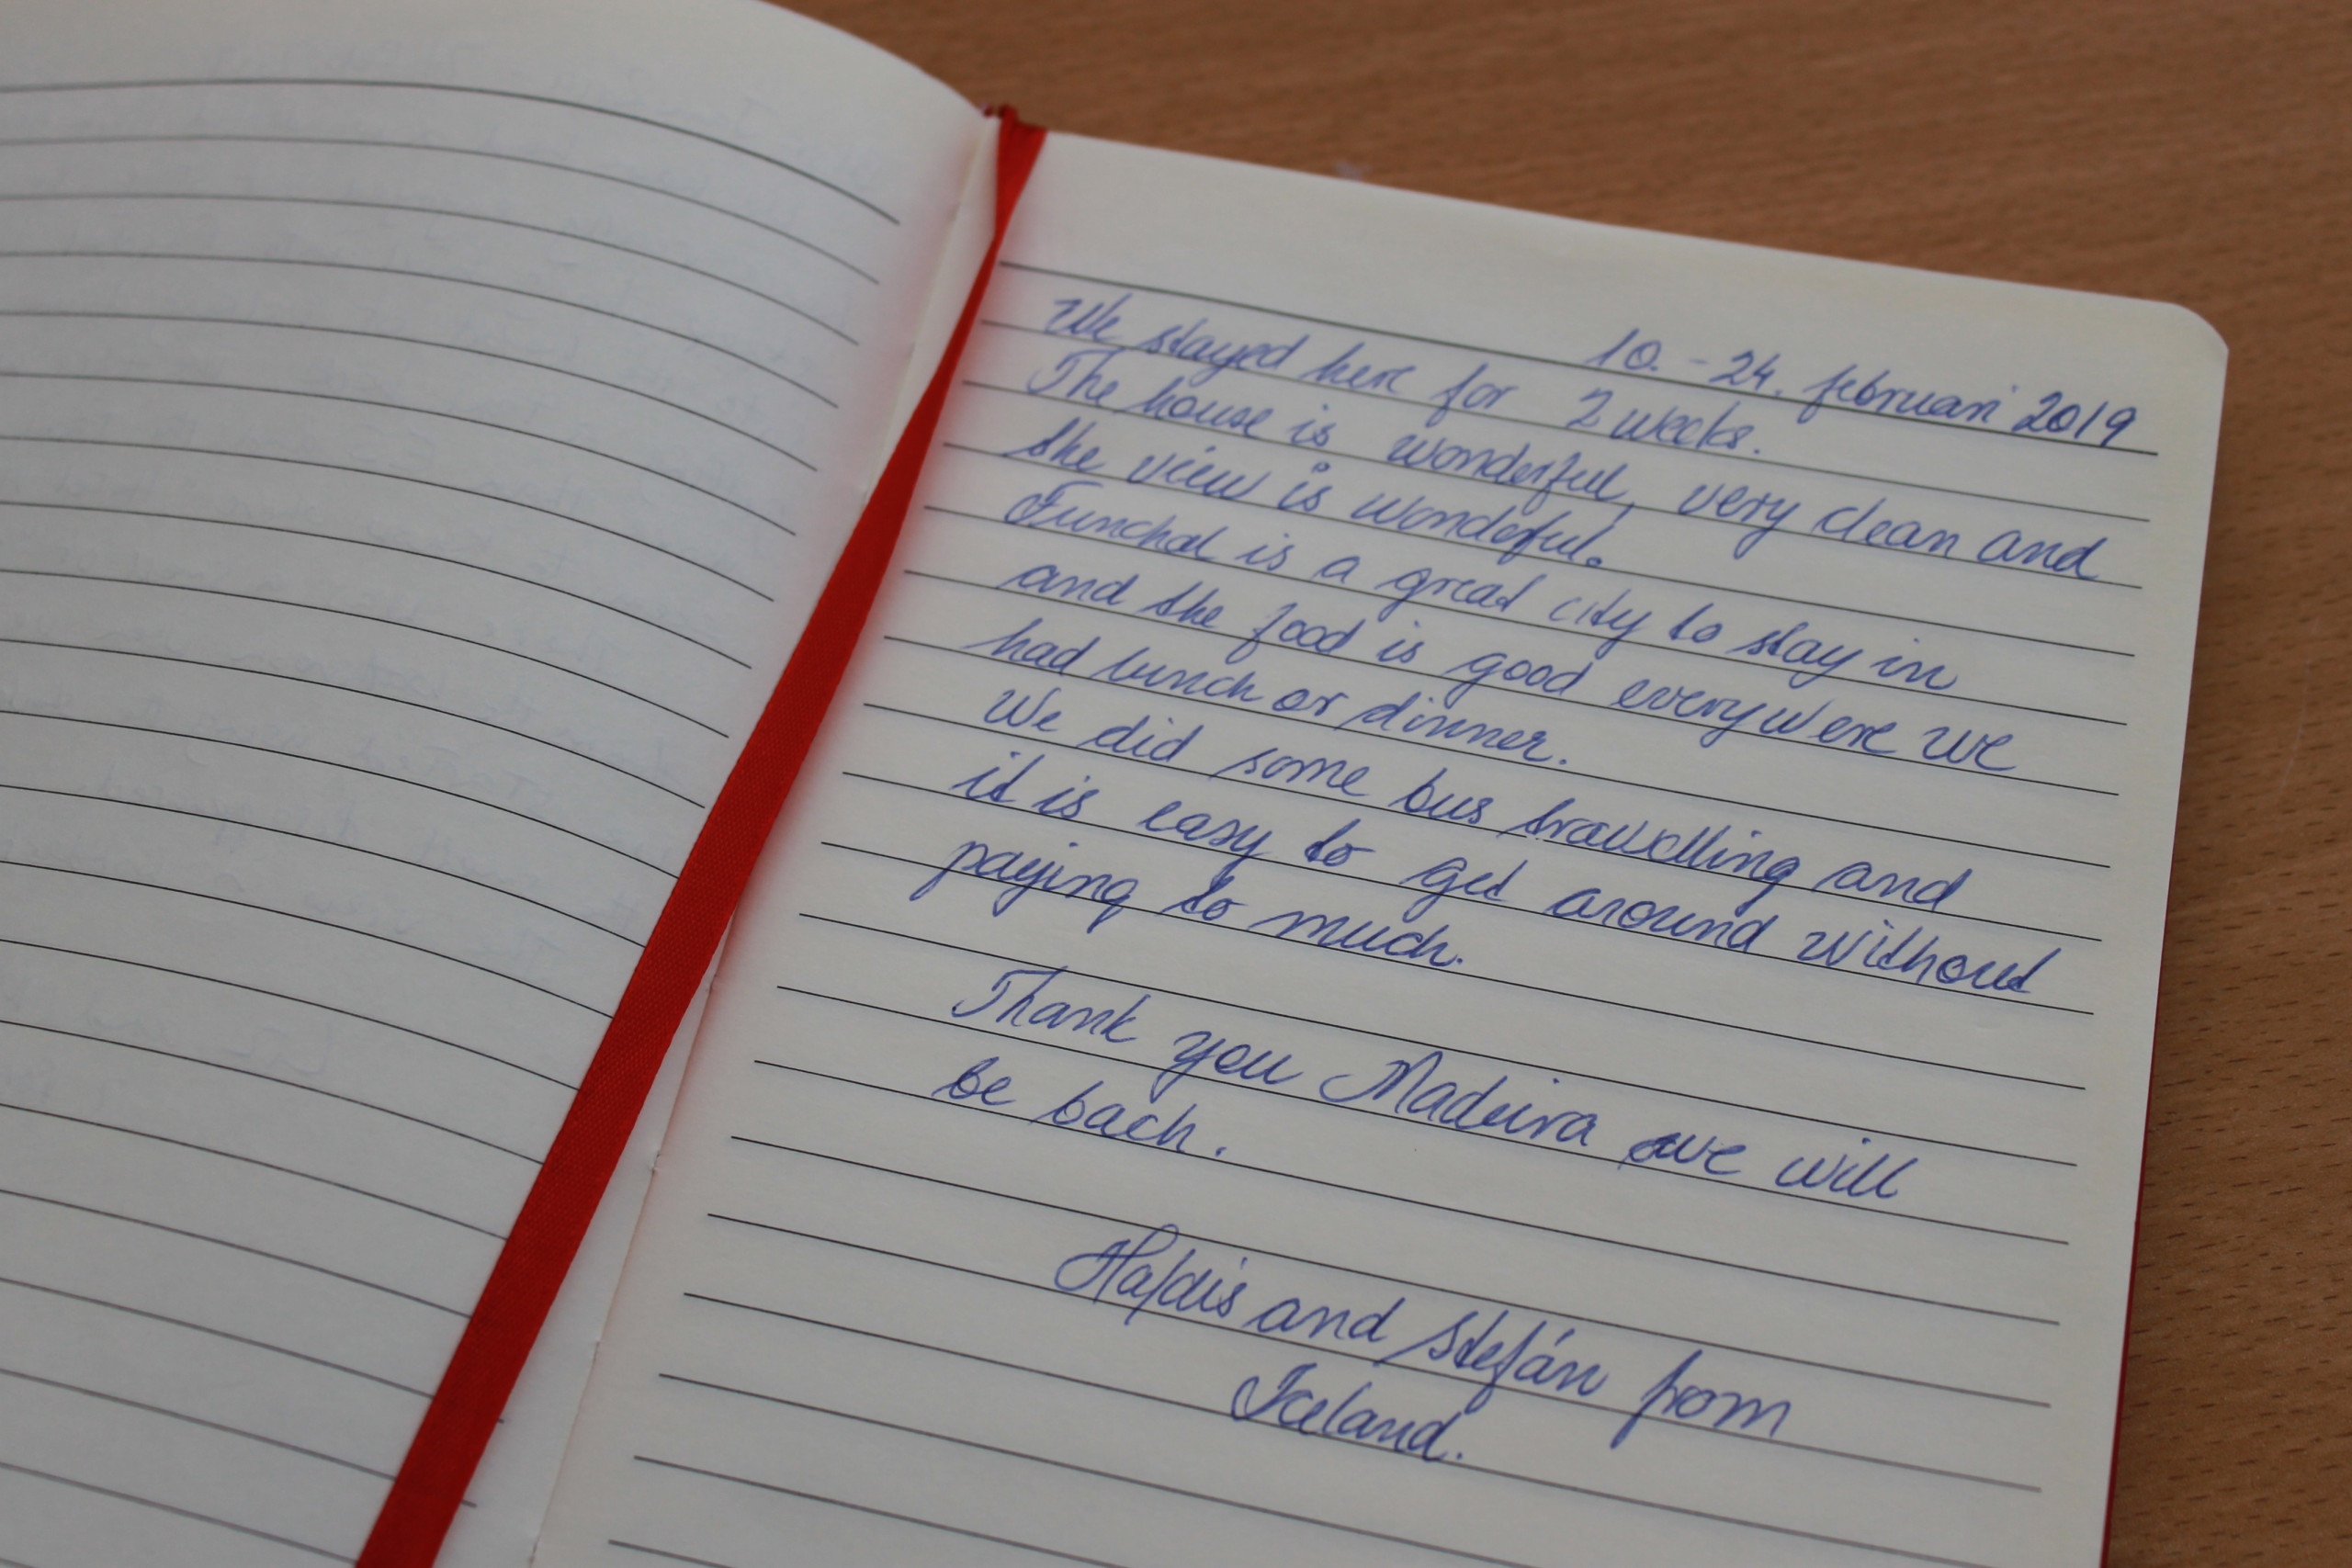 10. - 24. februari 2019
We stayed here for 2 weeks.
The house is wonderful, very clean and
the view is wonderful.
Funchal is a great city to stay in
and the food is good everywere we
had lunch or dinner.
We did some bus travelling and
it is easy to get around without
paying to much.
Thank you Madeira we will
be back.
Hafdis and Stefán from
Iceland.